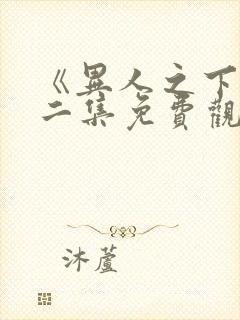 《異人之下
二集免費觀
沐蘆